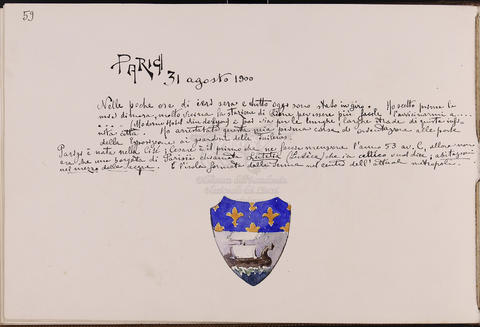 59
PARIGI
31 agosto 1900
Nelle poche ore di ieri sera e tutto oggi sono stato in giro. Ho scelto prima la
mia dimora, molto vicina la stazione di Lione per essere più facile l'avvicinarmi a
Moderno Hotel e poi via per le lunghe larghe strade di questa
città. Ho arrestato quindi mia prima corsa di alle porte
della Esposizione ai giardini delle Tuileries.
Parigi è nata nella Cité; Cesare è il primo che ne fece menzione l'anno 53 av. C, allora non
era che una borgata di Parisii chiamata Lutetia che in celtico vuol dire, abitazioni
nel mezzo delle acque. È l'isola formata dalla Senna nel centro dell'attuale metropoli.